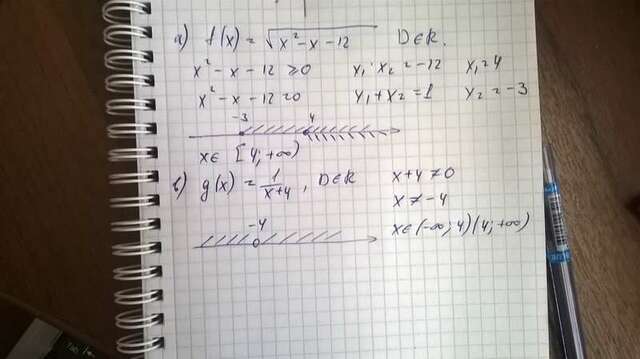 а) f(x) = √x² - x - 12   D ∈ R.
x² - x - 12 ≥ 0   x₁ · x₂ = -12   x₁ = 4
x² - x - 12 = 0   x₁ + x₂ = 1   x₂ = -3
-3   4
x ∈ [4; +∞)
в) g(x) = 1/(x+4), D ∈ R   x + 4 ≠ 0
x ≠ -4
-4   x ∈ (-∞; 4)(4; +∞)